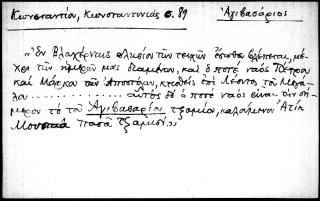 Κωνσταντίου, Κωνσταντινιάς σ. 89 Ἀγιβασάριος
"Ἐν Βλαχέρναις πλησίον τῶν τειχῶν ἔσωθεν βλέπεται, μέ-
χρι τῶν ἡμερῶν μας διαμένων, καὶ ὁ ποτὲ ναὸς Πέτρου
καὶ Μάρκου τῶν Ἀποστόλων, κτισθεὶς ἐπὶ Λέοντος τοῦ Μεγά-
λου .................. αὐτὸς δὲ ὁ ποτὲ ναὸς εἶναι τὴν σή-
μερον τὸ τοῦ Ἀγιβασαρίου τζαμίον, καλούμενον Ἀτὶκ
Μουσταφᾶ Πασᾶ Τζαμισί."